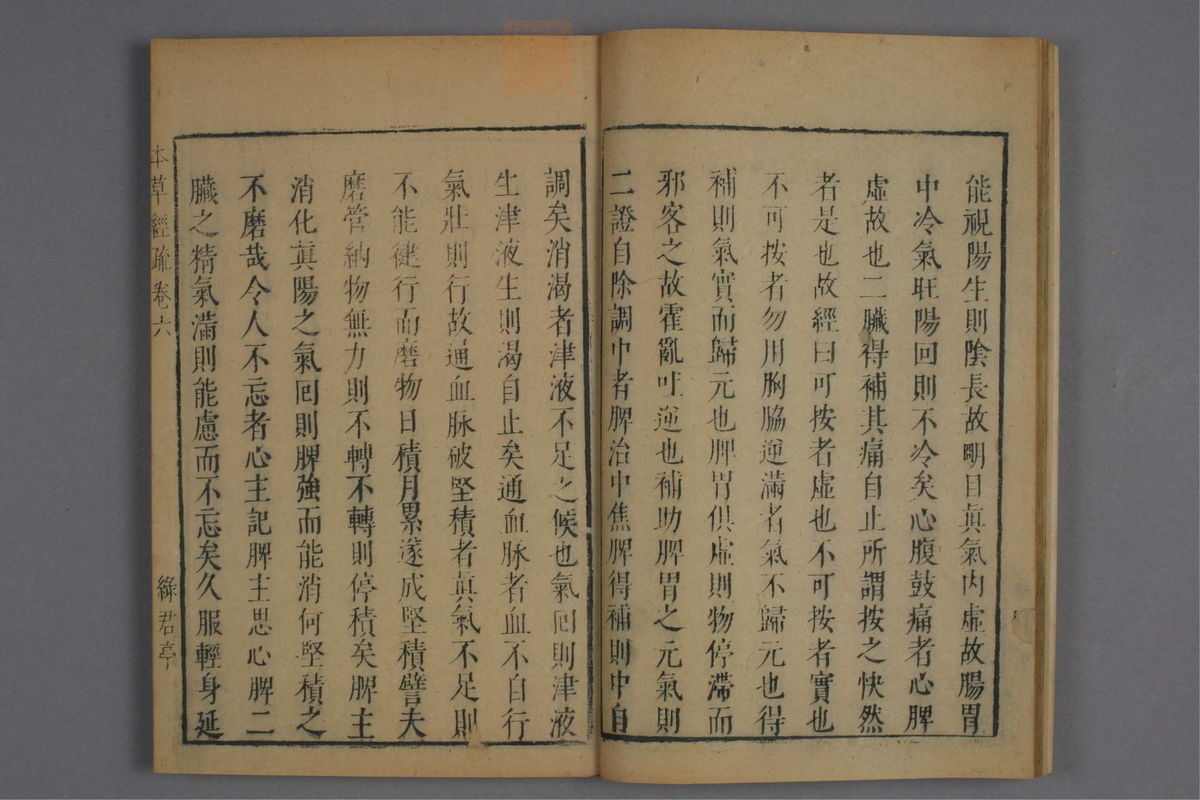 能視陽生則陰長故明目眞氣内虛故腸胃
中冷氣旺陽回則不冷矣心腹鼓痛者心脾
虛故也二臟得補其痛自止所謂按之快然
者是也故經曰可按者虛也不可按者實也
不可按者勿用胸脇逆滿者氣不歸元也得
補則氣實而歸元也脾胃俱虛則物停滯而
邪客之故霍亂吐逆也補助脾胃之元氣則
二證自除調中者脾治中焦脾得補則中自
調矣消渴者津液不足之候也氣囘則津液
生津液生則渴自止矣通血脉者血不自行
氣壯則行故通血脉破堅積者眞氣不足則
不能健行而磨物日積月累遂成堅積譬夫
磨管納物無力則不轉不轉則停積矣脾主
消化眞陽之氣囘則脾強而能消何堅積之
不磨哉令人不忘者心主記脾主思心脾二
臟之精氣滿則能慮而不忘矣久服輕身延
本草經疏卷六
綠君亭